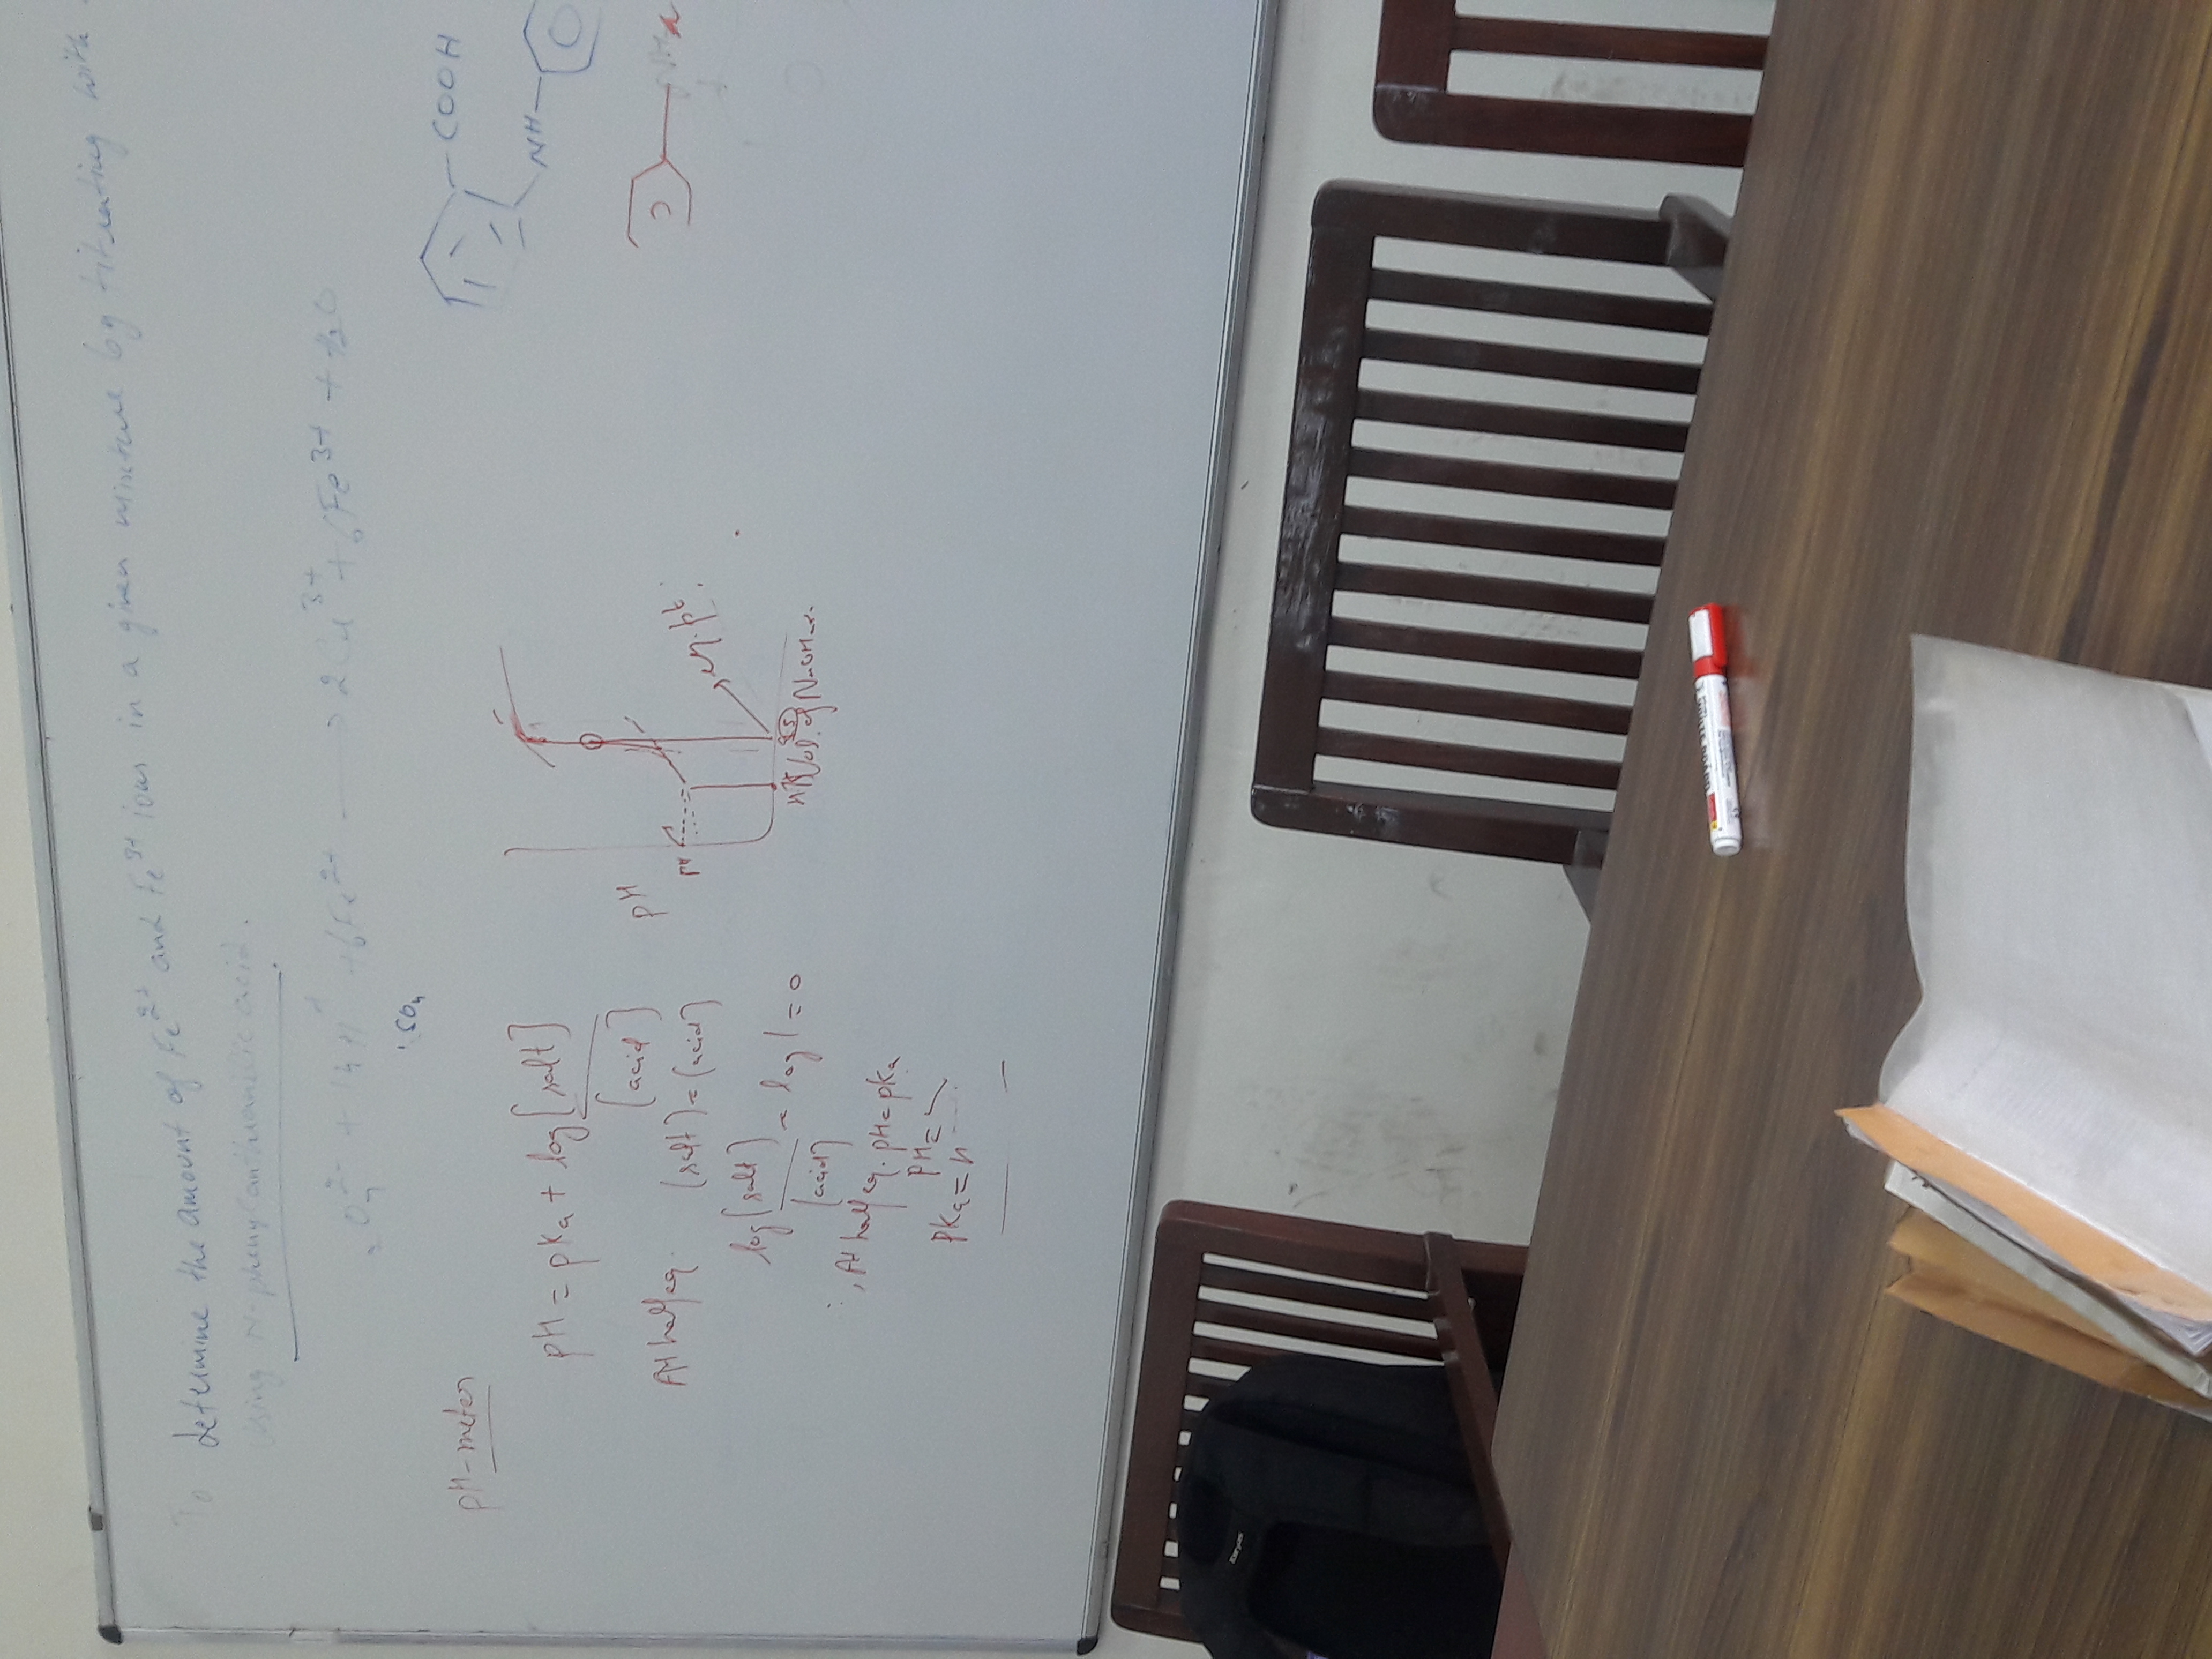 To determine the amount of Fe²⁺ and Fe³⁺ ions in a given mixture by titrating with
using N-phenylanthranilic acid.
O₇²⁻ + 14H⁺ + 6Fe²⁺ → 2Cr³⁺ + 6Fe³⁺ + H₂O
SO₄
pH-meter
pH = pKa + log [salt]
[acid]
At half eq. [salt] = [acid]
log [salt]
[acid]
= log 1 = 0
∴, At half eq. pH = pKa
pH =
pKa =
pH
pH
eq. pt.
Vol. of NaOH
COOH
NH